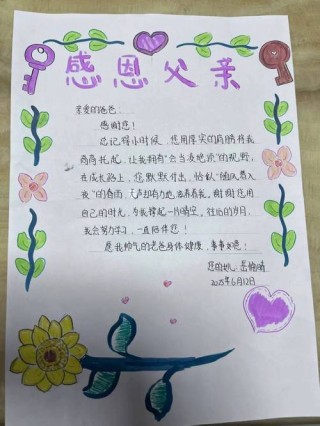 感恩父亲
亲爱的爸爸：
感谢您！
总记得小时候，您用厚实的肩膀将我
高高托起，让我拥有“会当凌绝顶”的视野，
在成长路上，您默默付出，恰似“随风潜入
夜”的春雨，无声却有力地滋养着我。谢谢您用
自己的时光，为我撑起一片晴空，往后的岁月，
我会努力学习，一直陪伴您！
愿我帅气的老爸身体健康，事事如意！
您的女儿：
2025年6月12日